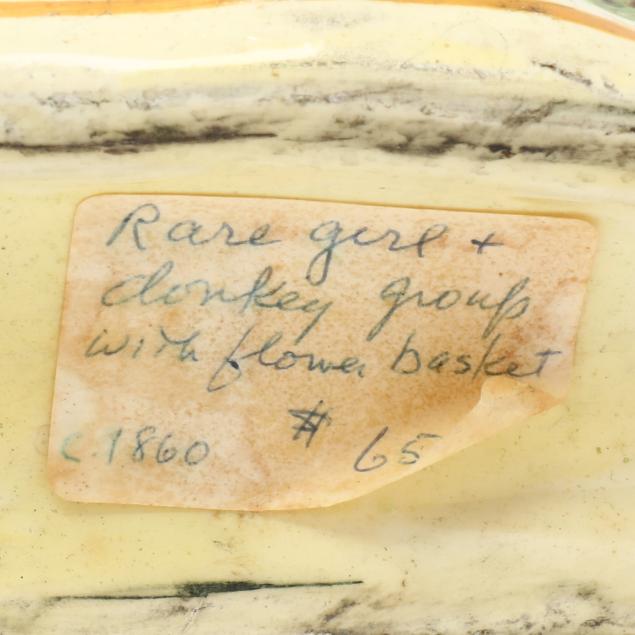 Rare girl +
donkey group
with flower basket
# 65
c.1860